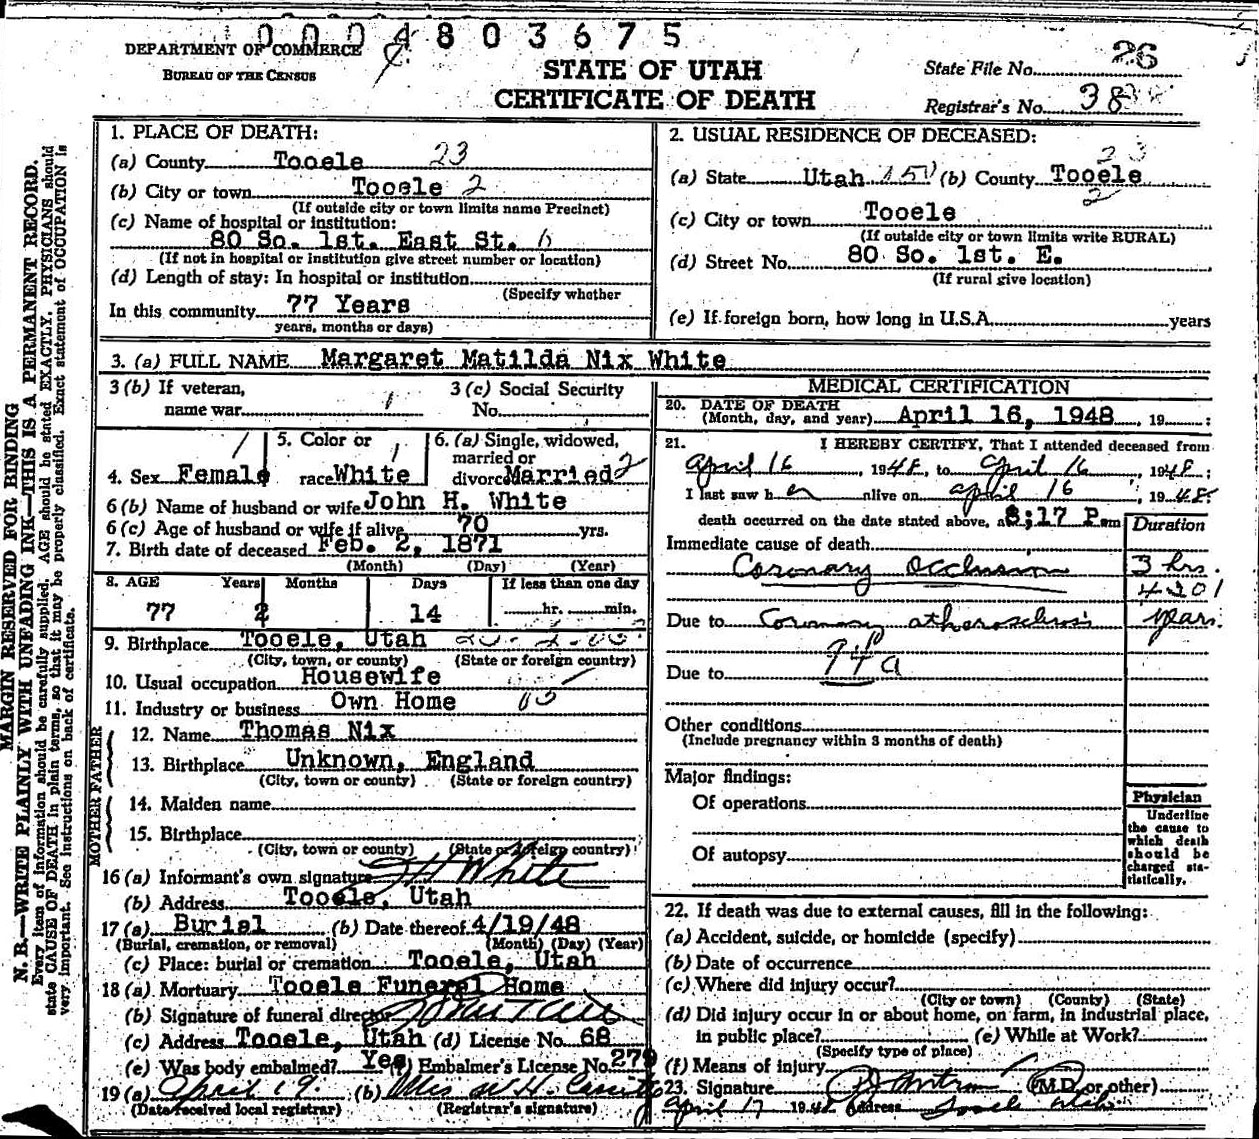 0004803675
DEPARTMENT OF COMMERCE
BUREAU OF THE CENSUS
STATE OF UTAH
CERTIFICATE OF DEATH
State File No. 26
Registrar's No. 38
MARGIN RESERVED FOR BINDING
N. B.—WRITE PLAINLY WITH UNFADING INK—THIS IS A PERMANENT RECORD.
Every item of information should be carefully supplied. AGE should be stated EXACTLY. PHYSICIANS should
state CAUSE OF DEATH in plain terms, so that it may be properly classified. Exact statement of OCCUPATION is
very important. See instructions on back of certificate.
1. PLACE OF DEATH:
(a) County Tooele 23
(b) City or town Tooele 2
(If outside city or town limits name Precinct)
(c) Name of hospital or institution:
80 So. 1st. East St.
(If not in hospital or institution give street number or location)
(d) Length of stay: In hospital or institution
(Specify whether
In this community 77 Years
years, months or days)
2. USUAL RESIDENCE OF DECEASED:
23
(a) State Utah (b) County Tooele
2
(c) City or town Tooele
(If outside city or town limits write RURAL)
(d) Street No. 80 So. 1st. E.
(If rural give location)
(e) If foreign born, how long in U.S.A. years
3. (a) FULL NAME Margaret Matilda Nix White
3 (b) If veteran,
name war
3 (c) Social Security
No.
4. Sex Female
5. Color or
race White
6. (a) Single, widowed,
married or
divorced Married 2
6 (b) Name of husband or wife John H. White
6 (c) Age of husband or wife if alive 70 yrs.
7. Birth date of deceased Feb. 2, 1871
(Month) (Day) (Year)
8. AGE Years Months Days If less than one day
77 2 14 hr. min.
9. Birthplace Tooele, Utah
(City, town, or county) (State or foreign country)
10. Usual occupation Housewife
11. Industry or business Own Home
FATHER
12. Name Thomas Nix
13. Birthplace Unknown, England
(City, town or county) (State or foreign country)
MOTHER
14. Maiden name
15. Birthplace
(City, town or county) (State or foreign country)
16 (a) Informant's own signature J H White
(b) Address Tooele, Utah
17 (a) Burial (b) Date thereof 4/19/48
(Burial, cremation, or removal) (Month) (Day) (Year)
(c) Place: burial or cremation Tooele, Utah
18 (a) Mortuary Tooele Funeral Home
(b) Signature of funeral director
(c) Address Tooele, Utah (d) License No. 68
(e) Was body embalmed? Yes (f) Embalmer's License No. 279
19 (a) April 19. (b) Mrs W. H.
(Date received local registrar) (Registrar's signature)
MEDICAL CERTIFICATION
20. DATE OF DEATH
(Month, day, and year) April 16, 1948 19 ;
21. I HEREBY CERTIFY, That I attended deceased from
April 16, 1948, to April 16, 1948;
I last saw her alive on April 16, 1948.
death occurred on the date stated above, at 8:17 P.m
Duration
Immediate cause of death
Coronary Occlusion 3 hrs.
4201
Due to Coronary atherosclerosis years.
94a
Due to
Other conditions
(Include pregnancy within 3 months of death)
Major findings:
Of operations
Of autopsy
Physician
Underline
the cause to
which death
should be
charged sta-
tistically.
22. If death was due to external causes, fill in the following:
(a) Accident, suicide, or homicide (specify)
(b) Date of occurrence
(c) Where did injury occur?
(City or town) (County) (State)
(d) Did injury occur in or about home, on farm, in industrial place,
in public place? (e) While at Work?
(Specify type of place)
(f) Means of injury
23. Signature (M.D. or other)
April 17 1948 Address Tooele Utah